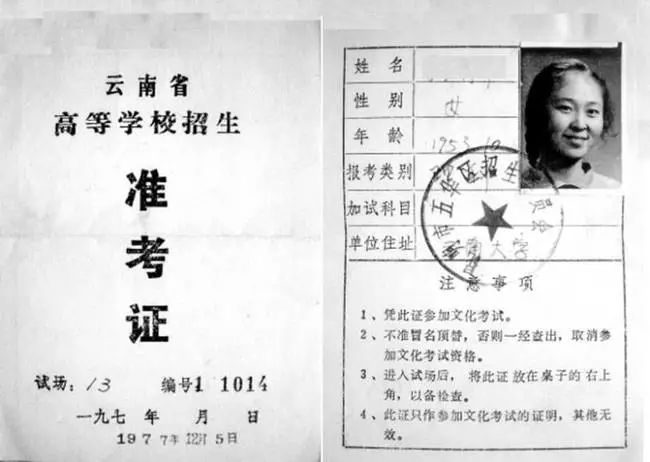 云南省
高等学校招生
准
考
证
试场：13 编号1 1014
一九七 年 月 日
1977年12月5日
姓名
性别 女
年龄 1953.10
报考类别
加试科目
单位住址 云南大学
市五华区招生委员会
注意事项
1、凭此证参加文化考试。
2、不准冒名顶替，否则一经查出，取消参
加文化考试资格。
3、进入试场后，将此证放在桌子的右上
角，以备检查。
4、此证只作参加文化考试的证明，其他无
效。